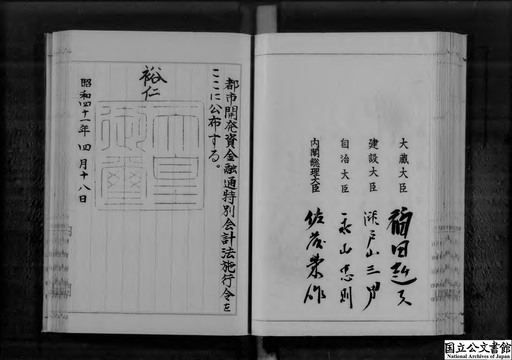 都市開発資金融通特別会計法施行令を
ここに公布する。
裕仁
天皇御璽
昭和四十一年四月十八日
大蔵大臣 福田赳夫
建設大臣 瀬戸山三男
自治大臣 永山忠則
内閣総理大臣 佐藤栄作
国立公文書館
National Archives of Japan